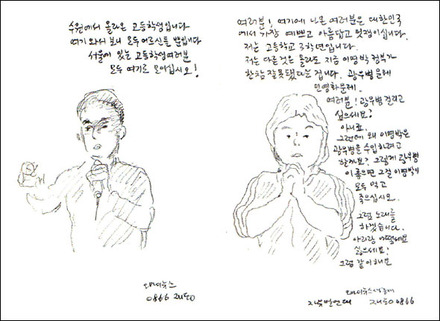 수원에서 올라온 고등학생입니다
여기 와서 보니 모두 어르신들 뿐입니다
서울에 있는 고등학생 여러분
모두 여기로 모이십시오!
0866
여러분! 여기에 나온 여러분은 대한민국
에서 가장 예쁘고 아름답고 멋쟁이십니다.
저는 고등학교 3학년입니다.
저는 다른것은 몰라도 지금 이명박 정부가
한참 잘못됐다는 겁니다. 광우병 문제
민영화문제.
여러분! 광우병 걸리고
싶으세요?
아니요.
그런데 왜 이명박은
광우병을 수입하려고
한까요? 그렇게 광우병
이 좋으면 그걸 이명박이
모두 먹고
죽으십시오.
그럼 노래를
하겠습니다.
아리랑 어떻세요
싫으세요!
그럼 같이해요
0866